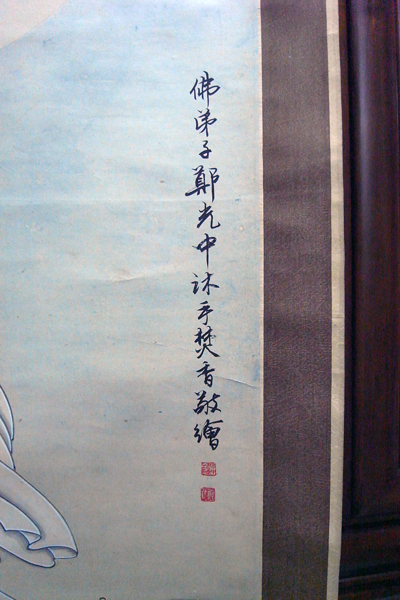 佛弟子鄭光中沐手焚香敬繪